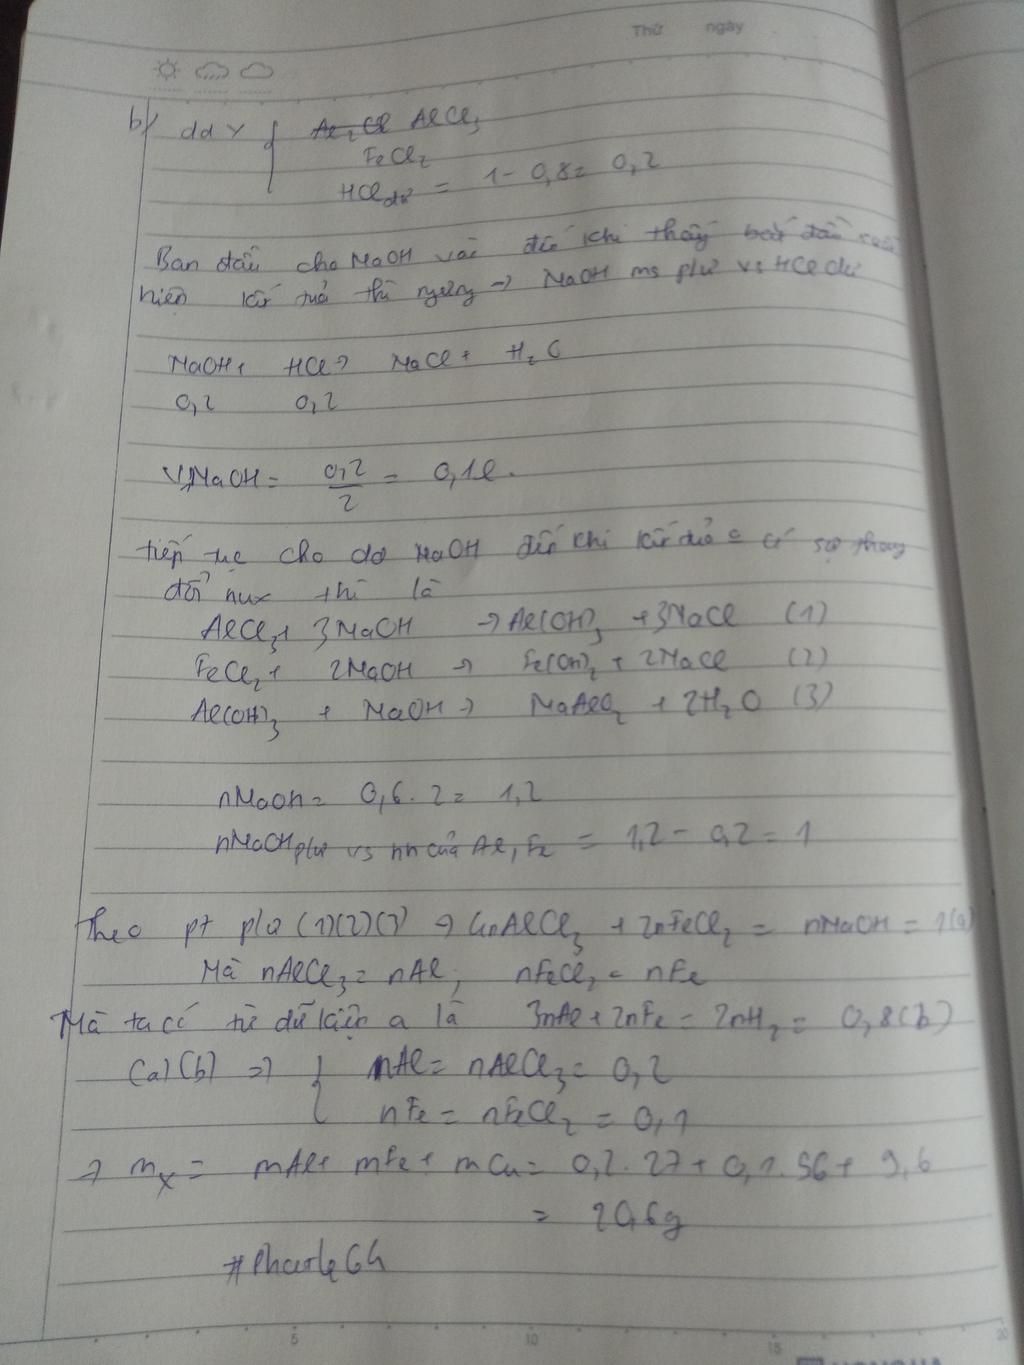 Thứ ngày
b) dd Y { AlCl₃
FeCl₂
HCl dư = 1 - 0,8 = 0,2
Ban đầu cho NaOH vào đến khi thấy bắt đầu xuất
hiện kết tủa thì ngừng → NaOH ms pứ vs HCl dư
NaOH + HCl → NaCl + H₂O
0,2 0,2
VNaOH = 0,2/2 = 0,1l.
tiếp tục cho dd NaOH đến khi kết tủa có sự thay
đổi nux thì là
AlCl₃ + 3NaOH → Al(OH)₃ + 3NaCl (1)
FeCl₂ + 2NaOH → Fe(OH)₂ + 2NaCl (2)
Al(OH)₃ + NaOH → NaAlO₂ + 2H₂O (3)
nNaOH = 0,6.2 = 1,2
nNaOH pứ vs hh của Al, Fe = 1,2 - 0,2 = 1
Theo pt pứ (1)(2)(3) → 4nAlCl₃ + 2nFeCl₂ = nNaOH = 1(a)
Mà nAlCl₃ = nAl, nFeCl₂ = nFe
Mà ta có từ dữ kiện a là 3nAl + 2nFe = 2nH₂ = 0,8(b)
(a)(b) => { nAl = nAlCl₃ = 0,2
nFe = nFeCl₂ = 0,1
→ mₓ = mAl + mFe + mCu = 0,2.27 + 0,1.56 + 9,6
= 20,6g
5 10 15 20